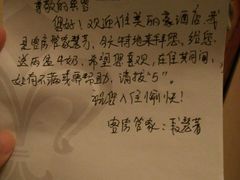 尊敬的宾客
您好!欢迎住美丽豪酒店,我
是客房管家慧芳,今天特地来拜您,给您
送两盒牛奶,希望您喜欢,在住其间,
如有不满或需帮助,请拨"5"。
祝您入住愉快!
客房管家:慧芳